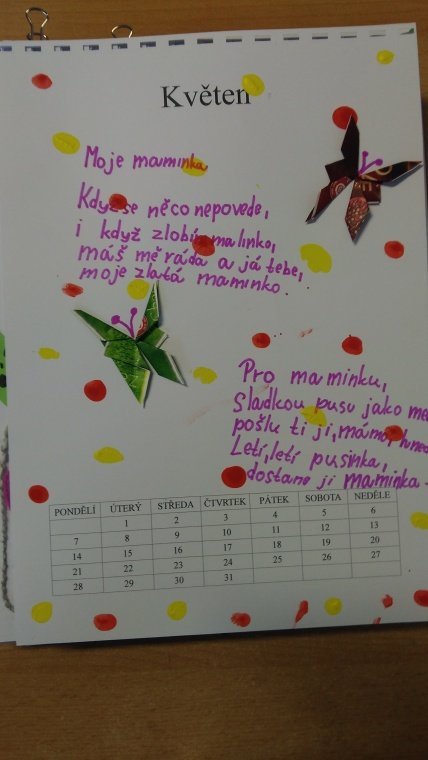 Květen
Moje maminka
Když se něco nepovede,
i když zlobím malinko,
máš mě ráda a já tebe,
moje zlatá maminko.
Pro maminku,
Sladkou pusu jako
pošlu ti ji, mámo,
Letí, letí pusinka,
dostane ji maminka.
PONDĚLÍ ÚTERÝ STŘEDA ČTVRTEK PÁTEK SOBOTA NEDĚLE
1 2 3 4 5 6
7 8 9 10 11 12 13
14 15 16 17 18 19 20
21 22 23 24 25 26 27
28 29 30 31